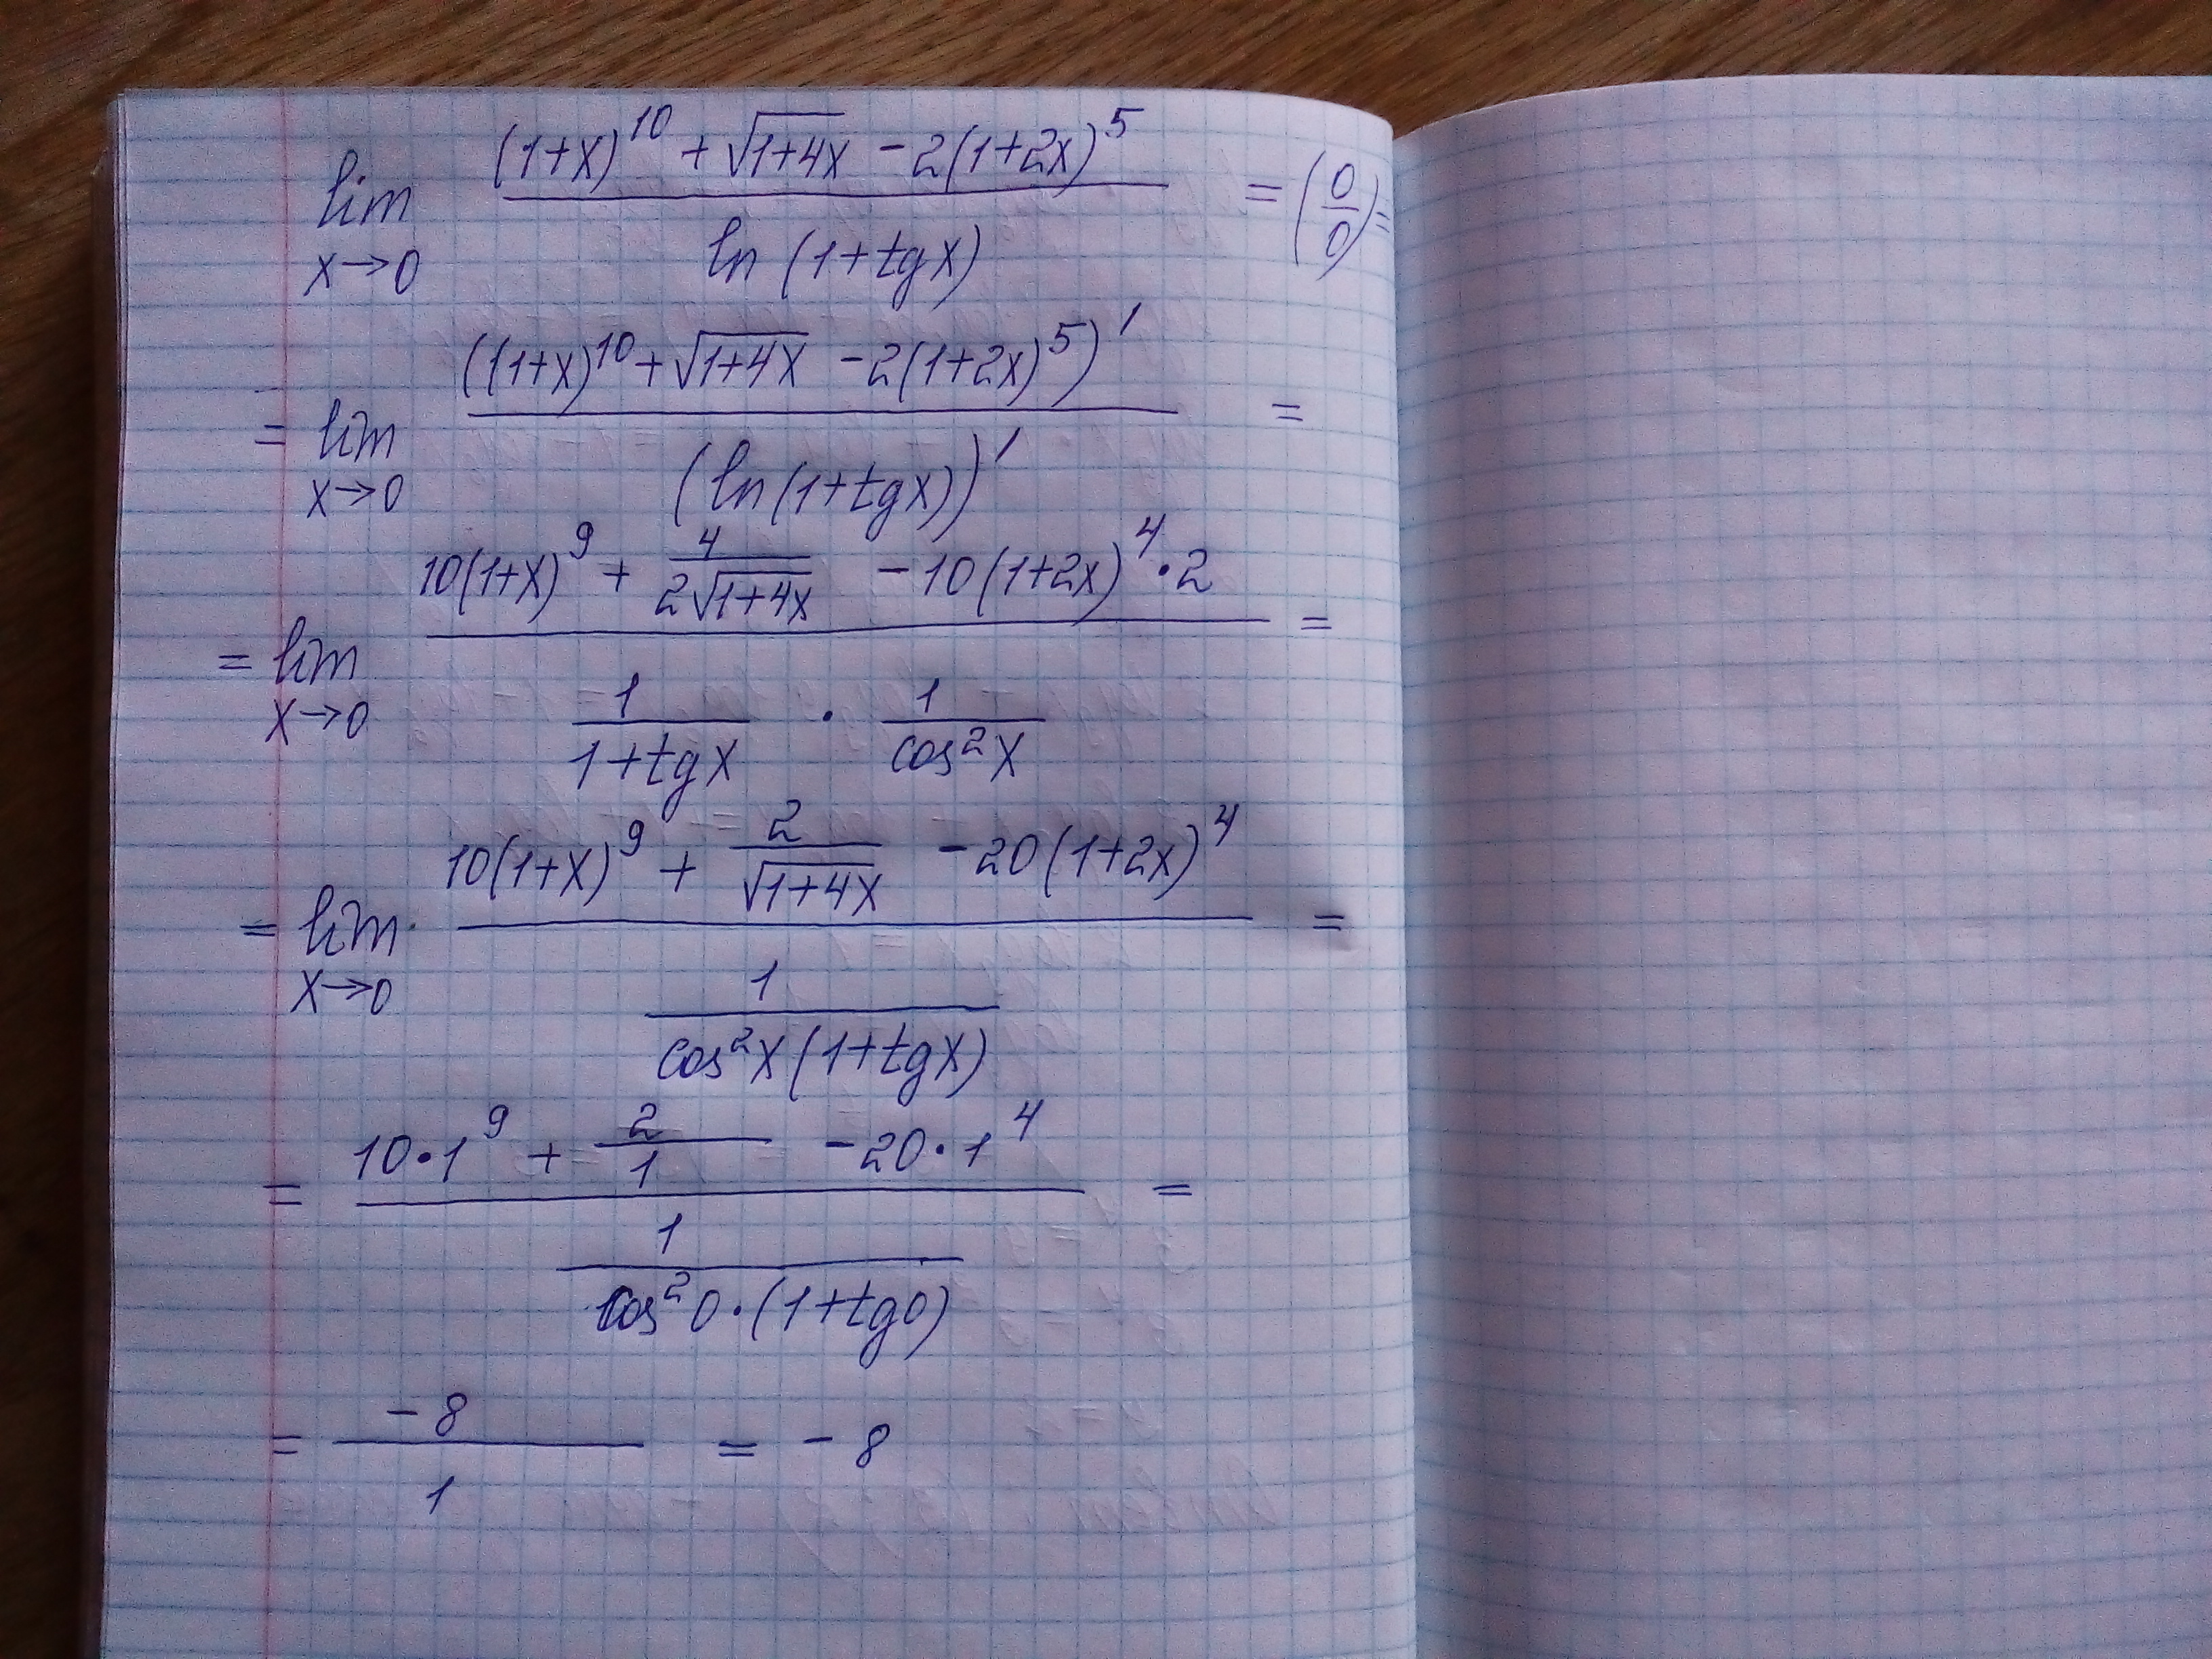 lim x→0 ((1+x)^10 + √(1+4x) - 2(1+2x)^5) / (ln (1+tg x)) = (0/0) =
= lim x→0 ((1+x)^10 + √(1+4x) - 2(1+2x)^5)' / (ln(1+tg x))' =
= lim x→0 (10(1+x)^9 + 4/(2√(1+4x)) - 10(1+2x)^4 · 2) / (1/(1+tg x) · 1/(cos^2 x)) =
= lim x→0 (10(1+x)^9 + 2/√(1+4x) - 20(1+2x)^4) / (1/(cos^2 x (1+tg x))) =
= (10·1^9 + 2/1 - 20·1^4) / (1/(cos^2 0·(1+tg 0))) =
= -8/1 = -8